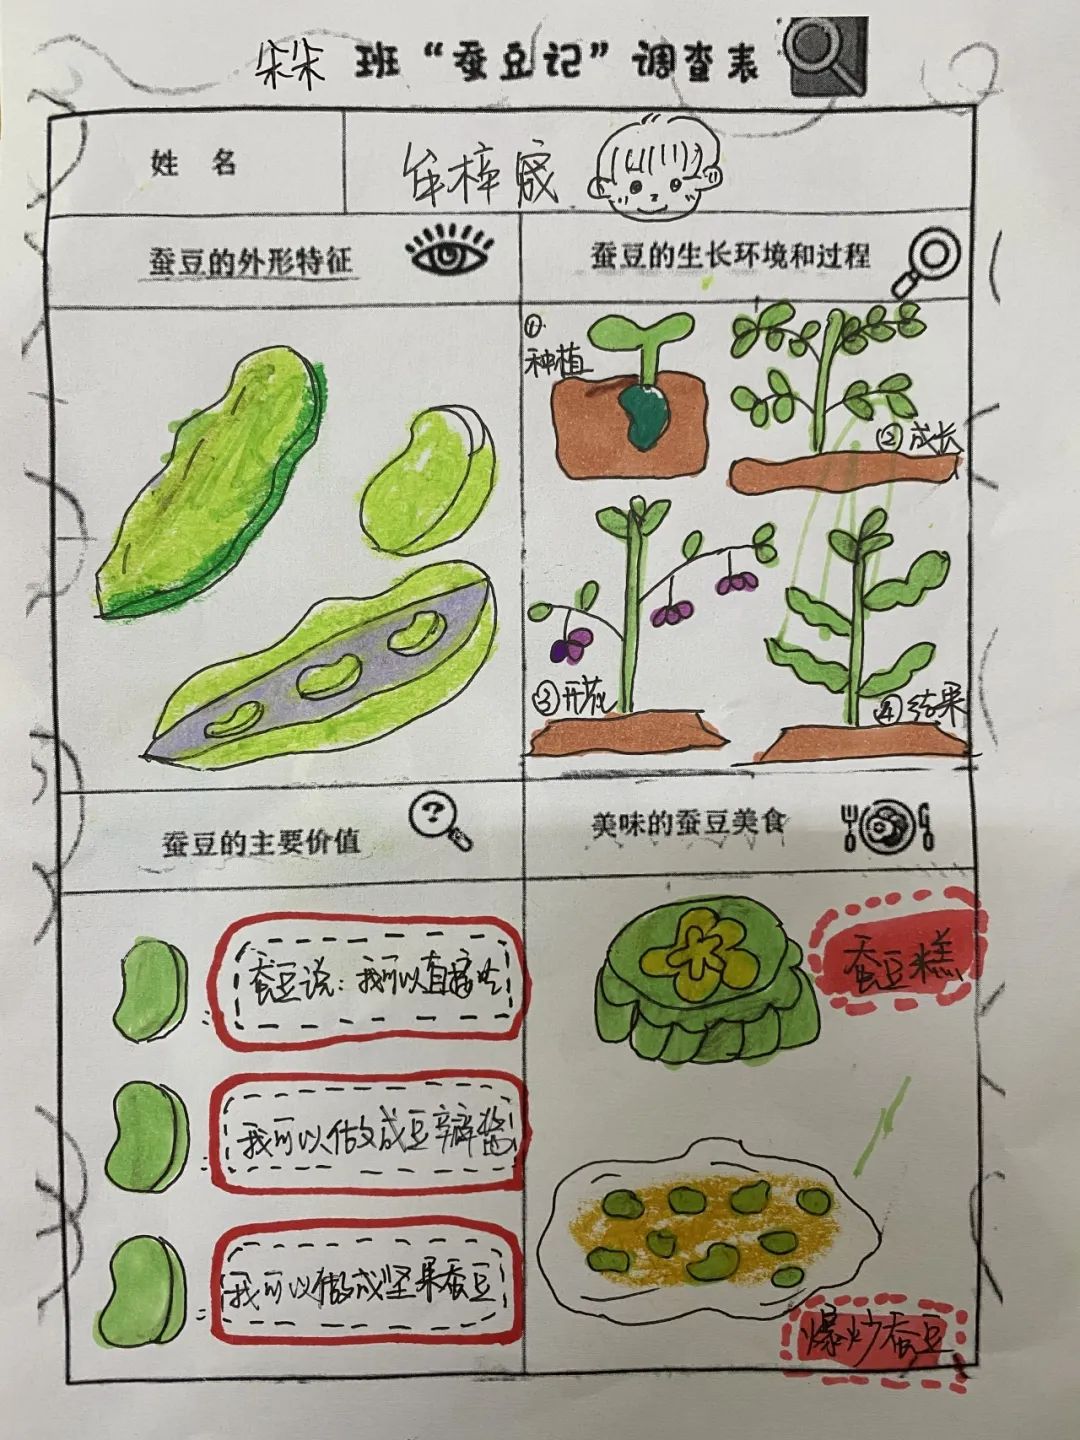 朵朵 班“蚕豆记”调查表
姓 名
牟梓宸
蚕豆的外形特征
蚕豆的生长环境和过程
①
种植
②成长
③开花
④结果
蚕豆的主要价值
美味的蚕豆美食
蚕豆说:我可以直接吃
我可以做成豆瓣酱
我可以做成坚果蚕豆
蚕豆糕
爆炒蚕豆
?